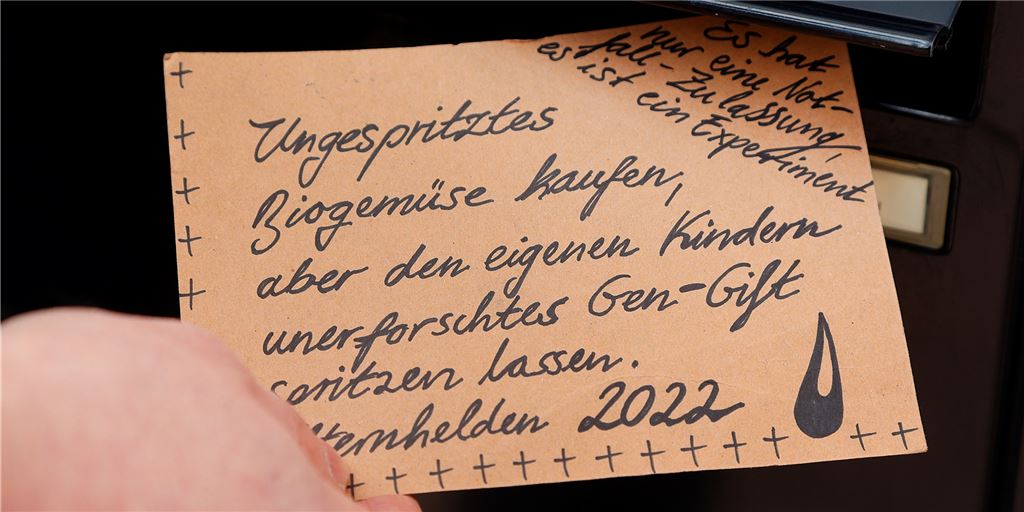 Es hat
nur eine Not-
fall-Zulassung,
es ist ein Experiment
Ungespritztes
Biogemüse kaufen,
aber den eigenen Kindern
unerforschtes Gen-Gift
spritzen lassen.
2022